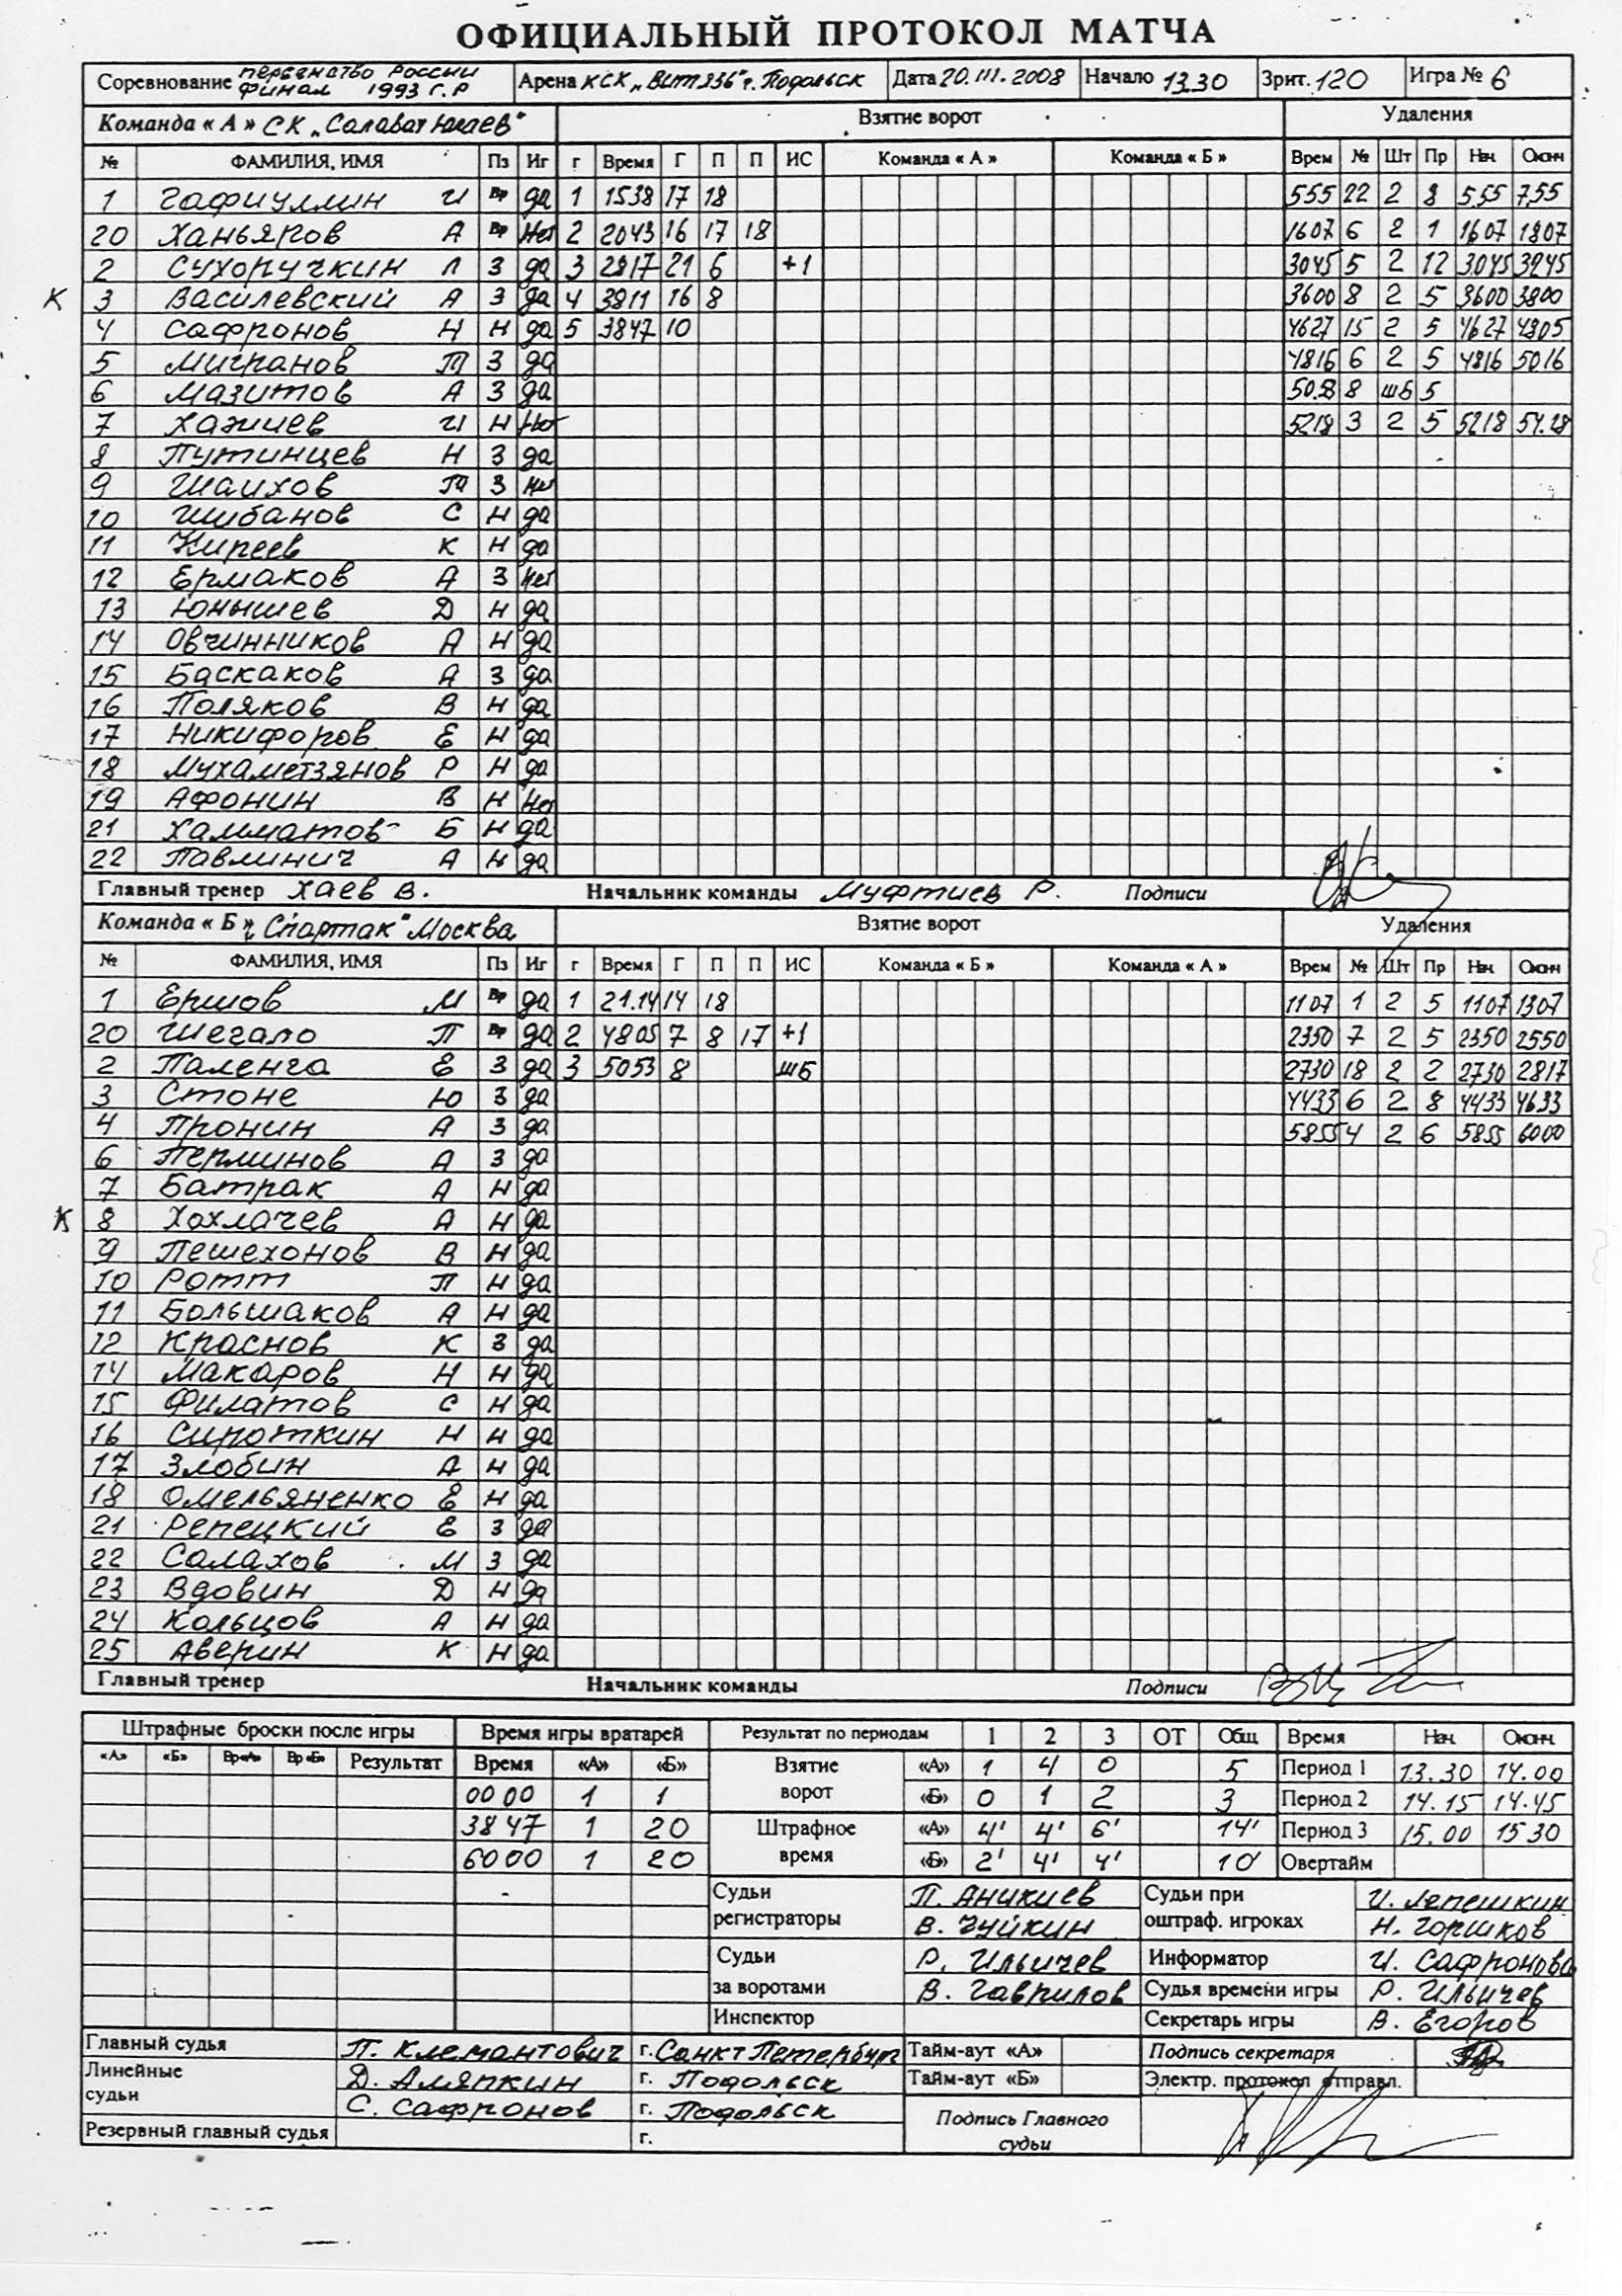 ОФИЦИАЛЬНЫЙ ПРОТОКОЛ МАТЧА
Соревнование первенство России финал 1993 г.р Арена КСК „Витязь" г. Подольск Дата 20.III.2008 Начало 13.30 Зрит. 120 Игра № 6
Команда « А » СК „Салават Юлаев" Взятие ворот Удаления
№ ФАМИЛИЯ, ИМЯ Пз Иг г Время Г П П ИС Команда « А » Команда « Б » Врем № Шт Пр Нач Оконч
1 Гафиуллин И Вр да 1 1538 17 18 555 22 2 8 5.55 7.55
20 Ханьяров А Вр Нет 2 2043 16 17 18 1607 6 2 1 1607 1807
2 Сухоручкин Л З да 3 2817 21 6 +1 3045 5 2 12 3045 3245
К 3 Василевский А З да 4 3811 16 8 3600 8 2 5 3600 3800
4 Сафронов Н Н да 5 3847 10 4627 15 2 5 4627 4805
5 Мигранов Т З да 4816 6 2 5 4816 5016
6 Мазитов А З да 50.53 8 шб 5
7 Хажиев И Н Нет 5218 3 2 5 5218 54.18
8 Путинцев Н З да
9 Шаихов Т З Нет
10 Шибанов С Н да
11 Киреев К Н да
12 Ермаков А З Нет
13 Юнышев Д Н да
14 Овчинников А Н да
15 Баскаков А З да
16 Поляков В Н да
17 Никифоров Е Н да
18 Мухаметзянов Р Н да
19 Афонин В Н Нет
21 Хамматов Б Н да
22 Павлинич А Н да
Главный тренер Хаев В. Начальник команды Муфтиев Р. Подписи
Команда « Б » „Спартак" Москва Взятие ворот Удаления
№ ФАМИЛИЯ, ИМЯ Пз Иг г Время Г П П ИС Команда « Б » Команда « А » Врем № Шт Пр Нач Оконч
1 Ершов М Вр да 1 21.14 14 18 1107 1 2 5 1107 1307
20 Шегало П Вр да 2 4805 7 8 17 +1 2350 7 2 5 2350 2550
2 Паленга Е З да 3 5053 8 шб 2730 18 2 2 2730 2817
3 Стоне Ю З да 4433 6 2 8 4433 4633
4 Пронин А З да 5855 4 2 6 5855 6000
6 Перминов А З да
7 Батрак А Н да
К 8 Хохлачев А Н да
9 Пешехонов В Н да
10 Ротт П Н да
11 Большаков А Н да
12 Краснов К З да
14 Макаров Н Н да
15 Филатов С Н да
16 Сироткин Н Н да
17 Злобин А Н да
18 Омельяненко Е Н да
21 Репецкий Е З да
22 Салахов М З да
23 Вдовин Д Н да
24 Кольцов А Н да
25 Аверин К Н да
Главный тренер Начальник команды Подписи
Штрафные броски после игры Время игры вратарей Результат по периодам 1 2 3 ОТ Общ Время Нач Оконч.
«А» «Б» Вр«А» Вр«Б» Результат Время «А» «Б» Взятие ворот «А» 1 4 0 5 Период 1 13.30 14.00
0000 1 1 «Б» 0 1 2 3 Период 2 14.15 14.45
3847 1 20 Штрафное время «А» 4' 4' 6' 14' Период 3 15.00 15 30
6000 1 20 «Б» 2' 4' 4' 10 Овертайм
Судьи регистраторы П. Аникиев Судьи при оштраф. игроках И. Лепешкин
В. Чуйкин Н. Горшков
Судьи за воротами Р. Ильичев Информатор И. Сафронова
В. Гаврилов Судья времени игры Р. Ильичев
Инспектор Секретарь игры В. Егоров
Главный судья П. Клемантович г. Санкт Петербург Тайм-аут «А» Подпись секретаря
Линейные судьи Д. Аляпкин г. Подольск Тайм-аут «Б» Электр. протокол отправл.
С. Сафронов г. Подольск Подпись Главного судьи
Резервный главный судья г.